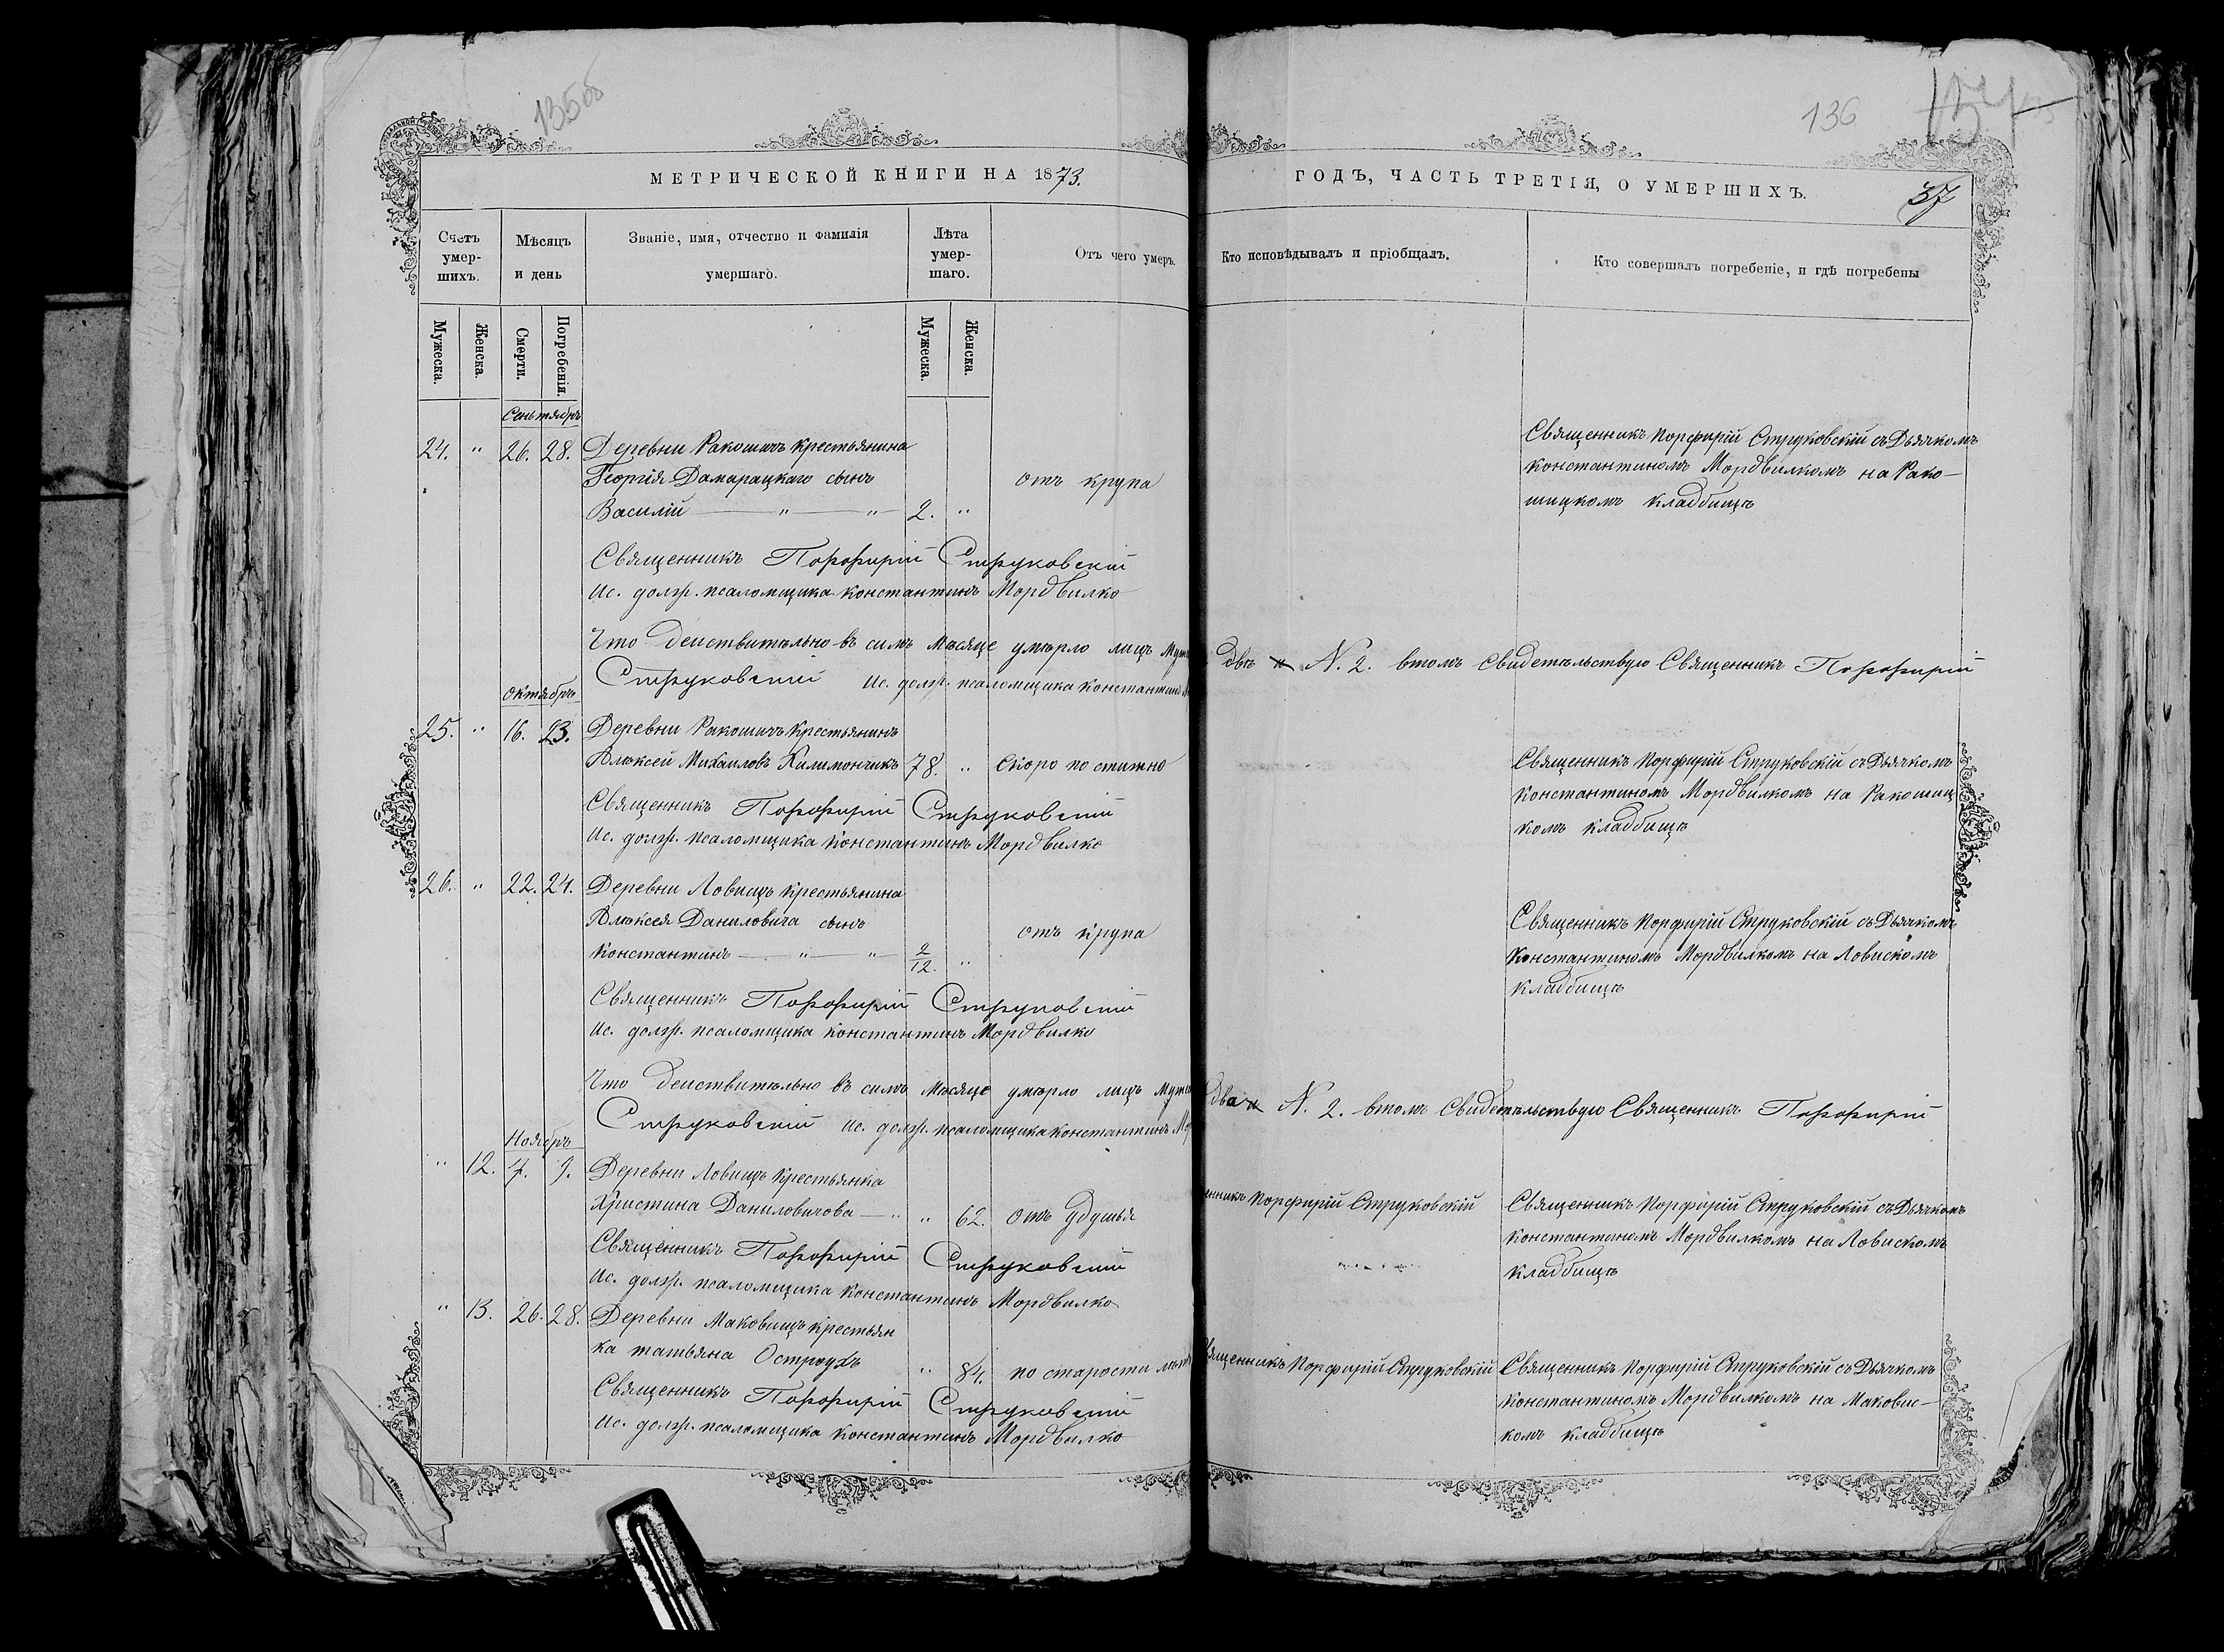 135об
136
МЕТРИЧЕСКОЙ КНИГИ НА 1873.
ГОДЪ, ЧАСТЬ ТРЕТІЯ, О УМЕРШИХЪ.
37
Счетъ умер-шихъ.
Мѣсяцъ и день
Званіе, имя, отчество и фамилія умершаго.
Лѣта умер-шаго.
Отъ чего умеръ.
Кто исповѣдывалъ и пріобщалъ.
Кто совершалъ погребеніе, и гдѣ погребены
Мужеска.
Женска.
Смерти.
Погребенія.
Мужеска.
Женска.
Сентябрь
24. " 26. 28. Деревни Ракошичъ крестьянина
Георгія Дамарацкаго сынъ
Василій " " 2. "
отъ крупа
Священникъ Порфирій Струковскій съ Дьячкомъ
Константиномъ Мордвилкомъ на Рако-
шицкомъ кладбищѣ
Священникъ Порфирій Струковскій
Ис. долж. псаломщика Константинъ Мордвилко
Что действительно въ семъ мѣсяце умерло лицъ
двѣ и N. 2. втомъ свидетельствую Священникъ Порфирій
Струковскій Ис. долж. псаломщика Константинъ
Октябрь
25. " 16. 23. Деревни Ракошичъ крестьянинъ
Алексей Михаиловъ Килимончикъ 78. " Скоро постижно
Священникъ Порфирій Струковскій съ Дьячкомъ
Константиномъ Мордвилкомъ на Ракошиц
комъ кладбищѣ
Священникъ Порфирій Струковскій
Ис. долж. псаломщика Константинъ Мордвилко
26. " 22. 24. Деревни Ловищъ крестьянина
Алексея Даниловича сынъ
Константинъ " " 2/12. "
отъ крупа
Священникъ Порфирій Струковскій съ Дьячкомъ
Константиномъ Мордвилкомъ на Ловискомъ
кладбищѣ
Священникъ Порфирій Струковскій
Ис. долж. псаломщика Константинъ Мордвилко
Что действительно въ семъ мѣсяце умерло лицъ
два и N. 2. втомъ Свидетельствую Священникъ Порфирій
Струковскій Ис. долж. псаломщика Константинъ
Ноябрь
" 12. 7. 9. Деревни Ловищъ крестьянка
Христина Даниловичова " " 62. Отъ удушья
Порфирій Струковскій
Священникъ Порфирій Струковскій съ Дьячкомъ
Константиномъ Мордвилкомъ на Ловискомъ
кладбищѣ
Священникъ Порфирій Струковскій
Ис. долж. псаломщика Константинъ Мордвилко
" 13. 26. 28. Деревни Маковищъ крестьян
ка татьяна Остроухъ " 84. по старости лѣтъ
Священникъ Порфирій Струковскій
Священникъ Порфирій Струковскій съ Дьячкомъ
Константиномъ Мордвилкомъ на Маковис-
комъ кладбищѣ
Священникъ Порфирій Струковскій
Ис. долж. псаломщика Константинъ Мордвилко